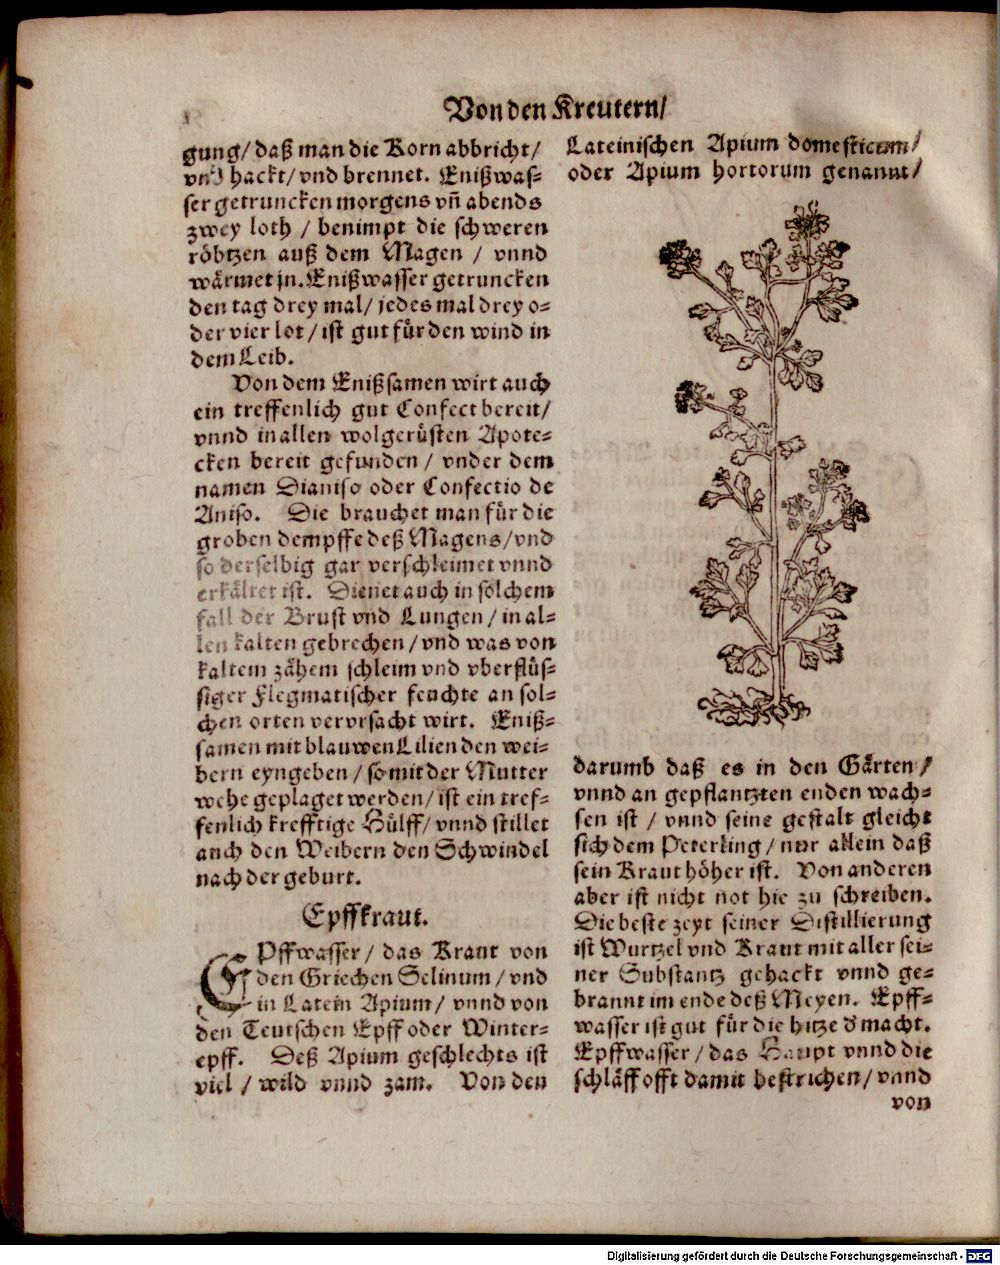 Von den Kreutern/
gung/ daß man die Korn abbricht/
vnd hackt/ vnd brennet. Enißwas⸗
ser getruncken morgens vñ abends
zwey loth / benimpt die schweren
röbtzen auß dem Magen / vnnd
wärmet jn. Enißwasser getruncken
den tag drey mal/ jedes mal drey o⸗
der vier lot / ist gut für den wind in
dem Leib.
Von dem Enißsamen wirt auch
ein treffenlich gut Confect bereit/
vnnd in allen wolgerüsten Apote⸗
cken bereit gefunden / vnder dem
namen Dianiso oder Confectio de
Aniso. Die brauchet man für die
groben dempffe deß Magens/ vnd
so derselbig gar verschleimet vnnd
erkältet ist. Dienet auch in solchem
fall der Brust vnd Lungen / in al⸗
len kalten gebrechen / vnd was von
kaltem zähem schleim vnd vberflüs⸗
siger Flegmatischer feuchte an sol⸗
chen orten vervrsacht wirt. Eniß⸗
samen mit blauwen Lilien den wei⸗
bern eyngeben / so mit der Mutter
wehe geplaget werden/ ist ein tref⸗
fenlich krefftige Hülff/ vnnd stillet
auch den Weibern den Schwindel
nach der geburt.
Epffkraut.
EPffwasser / das Kraut von
den Griechen Selinum / vnd
in Latein Apium/ vnnd von
den Teutschen Epff oder Winter⸗
epff. Deß Apium geschlechts ist
viel / wild vnnd zam. Von den
Lateinischen Apium domesticum/
oder Apium hortorum genannt/
darumb daß es in den Gärten /
vnnd an gepflantzten enden wach⸗
sen ist / vnnd seine gestalt gleicht
sich dem Peterling / nur allein daß
sein Kraut höher ist. Von anderen
aber ist nicht not hie zu schreiben.
Die beste zeyt seiner Distillierung
ist Wurtzel vnd Kraut mit aller sei⸗
ner Substantz gehackt vnnd ge⸗
brannt im ende deß Meyen. Epff⸗
wasser ist gut für die hitze d' macht.
Epffwasser / das Haupt vnnd die
schläff offt damit bestrichen/ vnnd
von
Digitalisierung gefördert durch die Deutsche Forschungsgemeinschaft - DFG